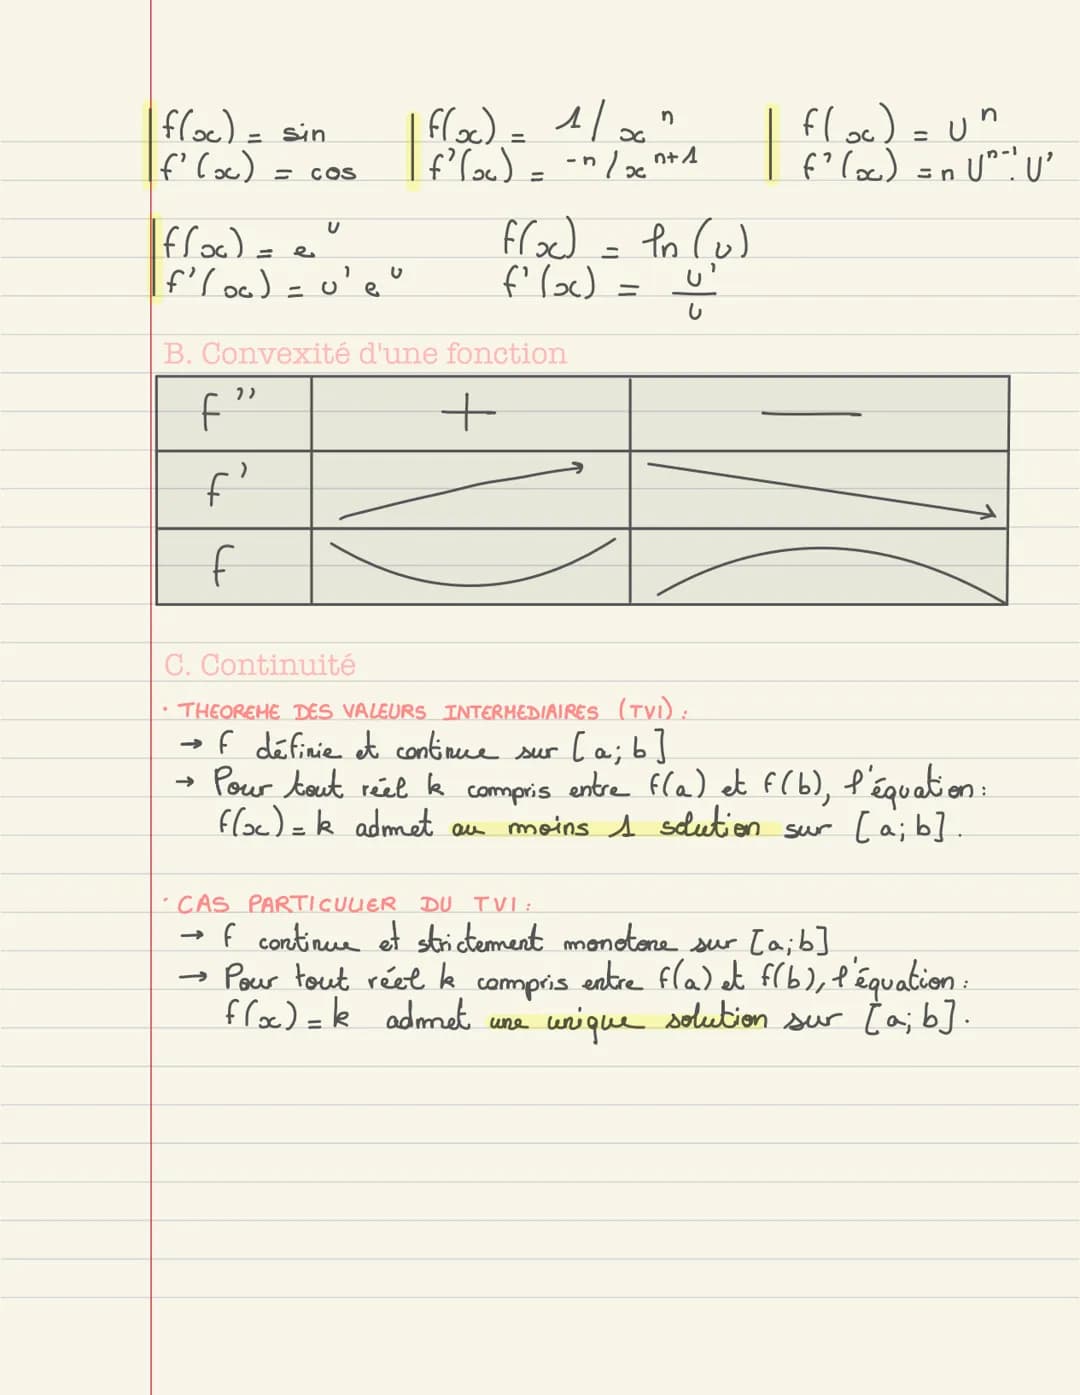 f(x) = sin f(x) = 1/x^n f(x) = U^n
f'(x) = cos f'(x) = -n/x^n+1 f'(x) = n U^n-1. U'
f(x) = e^u f(x) = ln(u)
f'(x) = u' e^u f'(x) = u'/u
B. Convexité d'une fonction
f'' + −
f'
f
C. Continuité
· THEOREME DES VALEURS INTERMEDIAIRES (TVI) :
→ f définie et continue sur [a; b]
→ Pour tout réel k compris entre f(a) et f(b), l'équation :
f(x) = k admet au moins 1 solution sur [a; b].
· CAS PARTICULIER DU TVI :
→ f continue et strictement monotone sur [a;b]
→ Pour tout réel k compris entre f(a) et f(b), l'équation :
f(x) = k admet une unique solution sur [a; b].